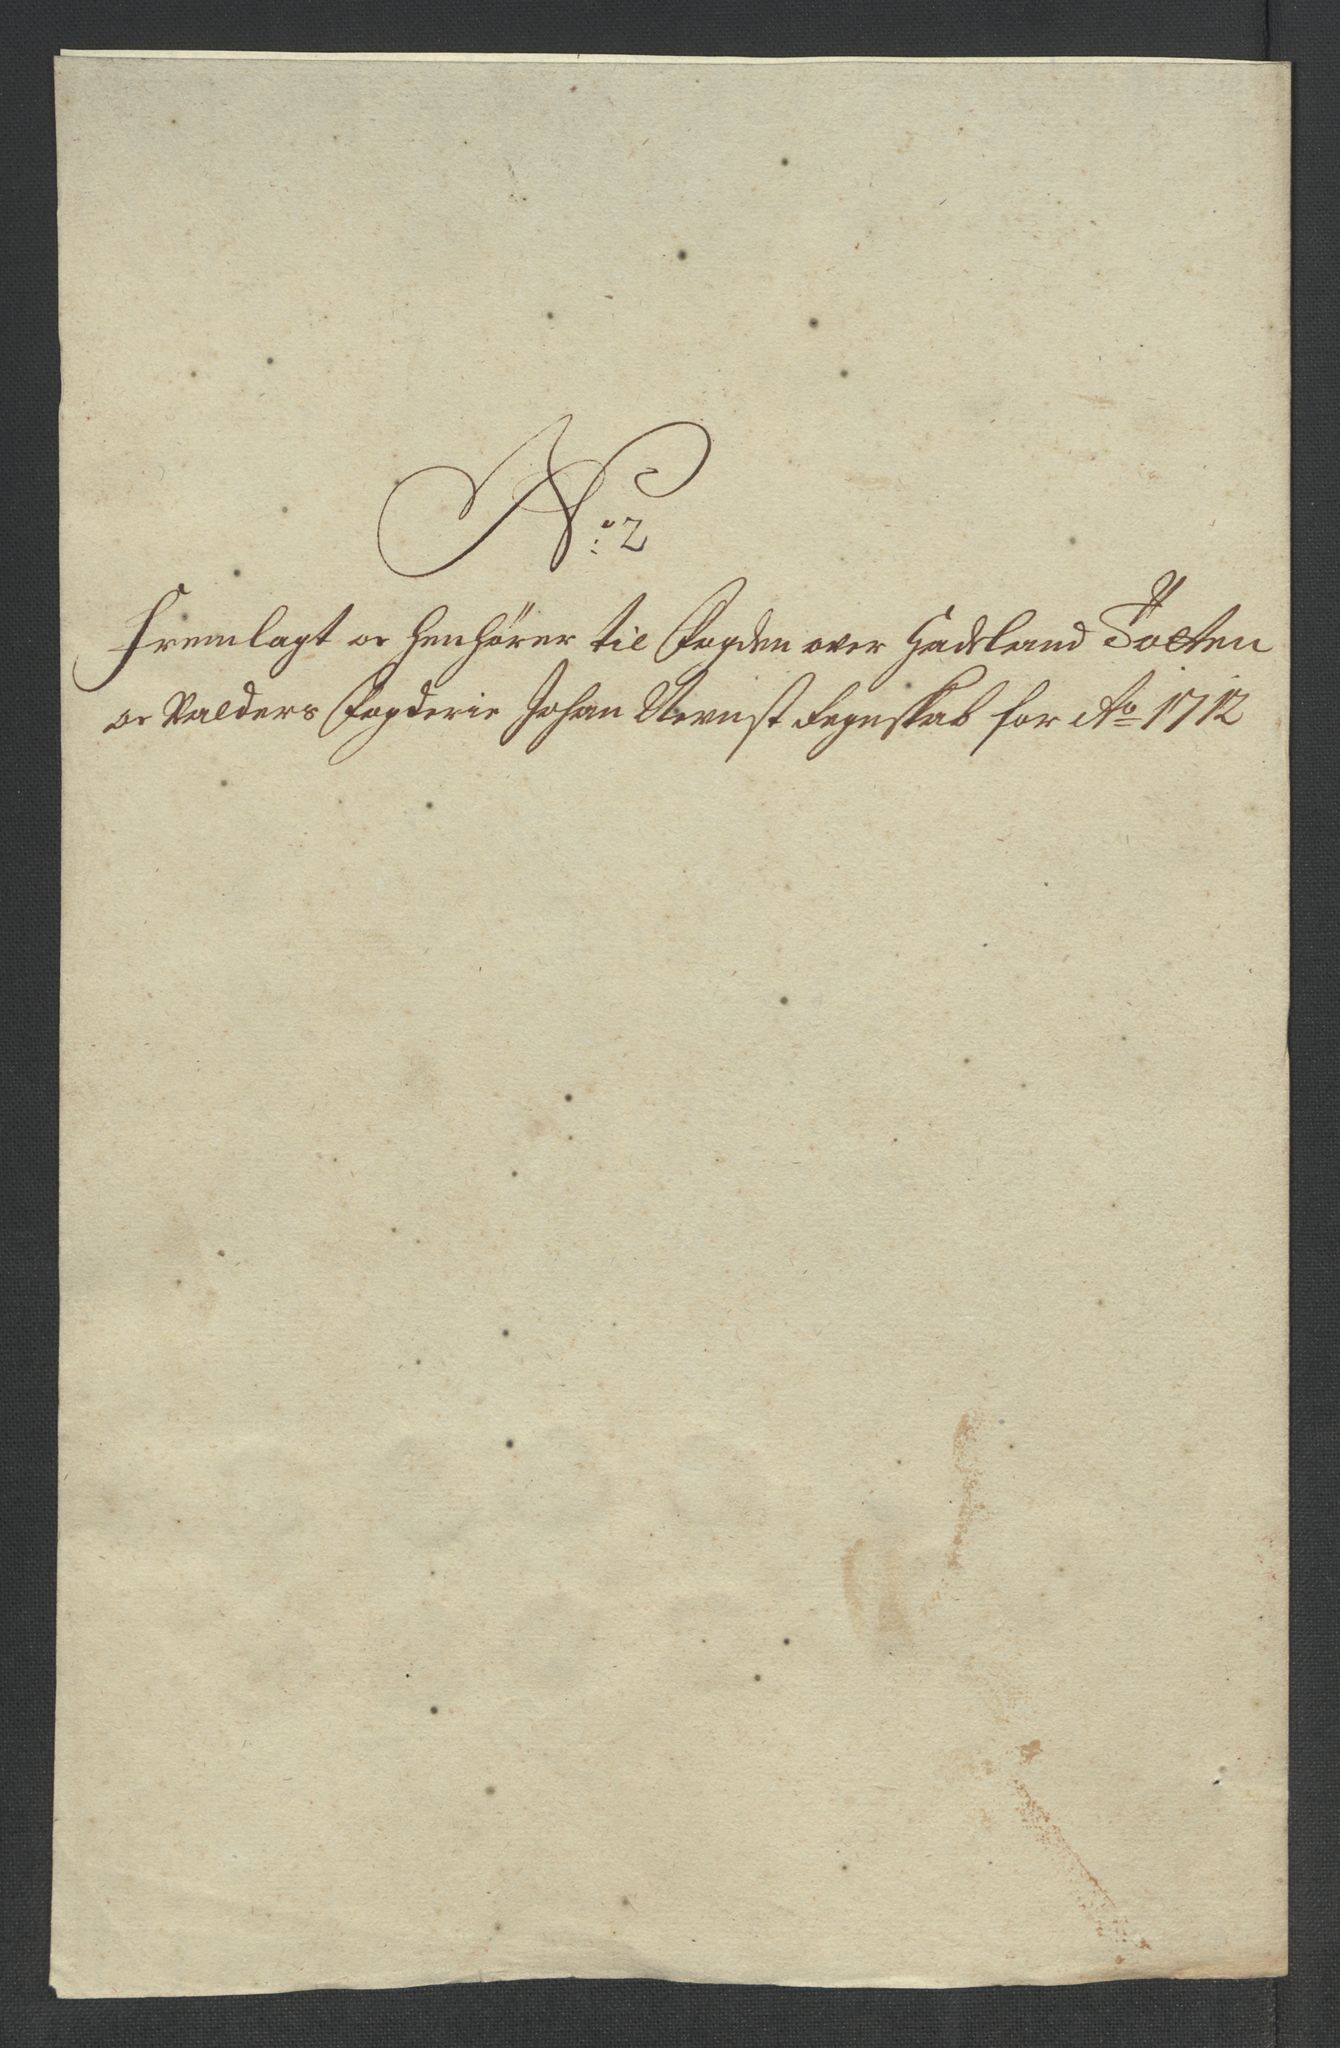 No: 2
Fremlagt oc henhörer til Fogden over Hadeland Totten
oc Valders Fogderie Johan Nernst Regnskab for Ao 1712